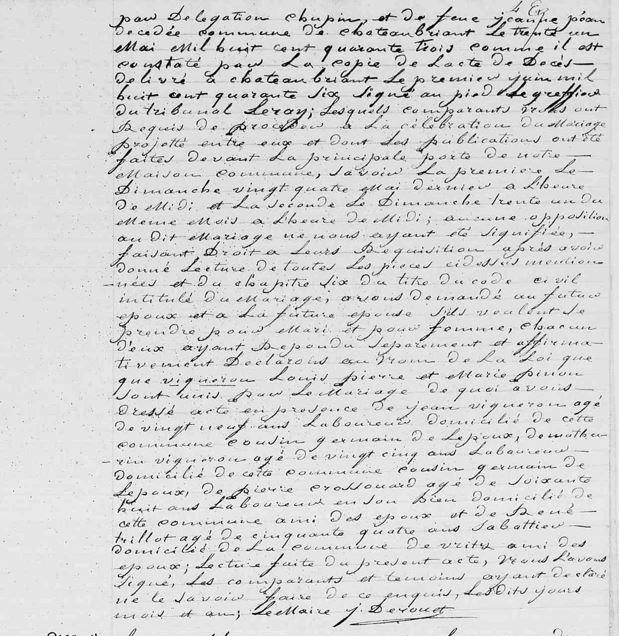 par Délégation chupin, et de feue jeanne péan
décédée commune de chateaubriant Le trente un
Mai Mil huit cent quarante trois comme il est
constaté par La copie de Lacte de Décès
délivré a chateaubriant Le premier juin mil
huit cent quarante six signé au pied Le greffier
du tribunal Leray; Lesquels comparants nous ont
Requis de procéder a La célébration du Mariage
projetté entre eux et dont Les publications ont été
faites devant La principale porte de notre
Maison commune, savoir La première Le
Dimanche vingt quatre Mai dernier a Lheure
de Midi et La seconde Le Dimanche trente un du
Même Mois a Lheure de Midi; aucune opposition
au dit Mariage ne nous ayant été signifiée,
faisant Droit a Leurs Requisition après avoir
donné Lecture de toutes Les pièces cidessus mention
nées et du chapitre six du titre du code civil
intitulé du Mariage, avons demandé au futur
epoux et a La future epouse sils veulent se
prendre pour Mari et pour femme, chacun
d'eux ayant Repondu separement et affirma
tivement Declarons au Nom de La Loi que
que vigneron Louis pierre et Marie pinon
sont unis par Le Mariage de quoi avons
dressé acte en presence de jean vigneron agé
de vingt neuf ans Laboureur domicilié de cette
commune cousin germain de Lepoux, de mathu
rin vigneron agé de vingt cinq ans Laboureur
domicilié de cette commune cousin germain de
Lepoux, de pierre crossouard agé de soixante
huit ans Laboureur en son bien domicilié de
cette commune ami des epoux et de René
trillot agé de cinquante quatre ans sabottier
domicilié de La commune de vritz ami des
epoux; Lecture faite du present acte, Nous Lavons
signé, Les comparants et temoins ayant déclaré
ne le savoir faire de ce enquis, Lesdits jours
mois et an; Le Maire j. Derouet